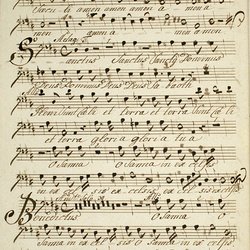 amen amen amen amen a
men amen a amen a
So Adag:
anctus Sanctus Sanctus Dominus
Deus Dominus Deus Deus Sa baoth
Pleni sunt cœli et terra et terra sunt cœ li
et terra gloria gloria tua
O Sanna O Sanna in ex celsis
in ex cel sis ex celsis in ex cel sis ex celsis
Benedictus O Sanna O
Sanna in ex cel sis O Sanna in ex celsis